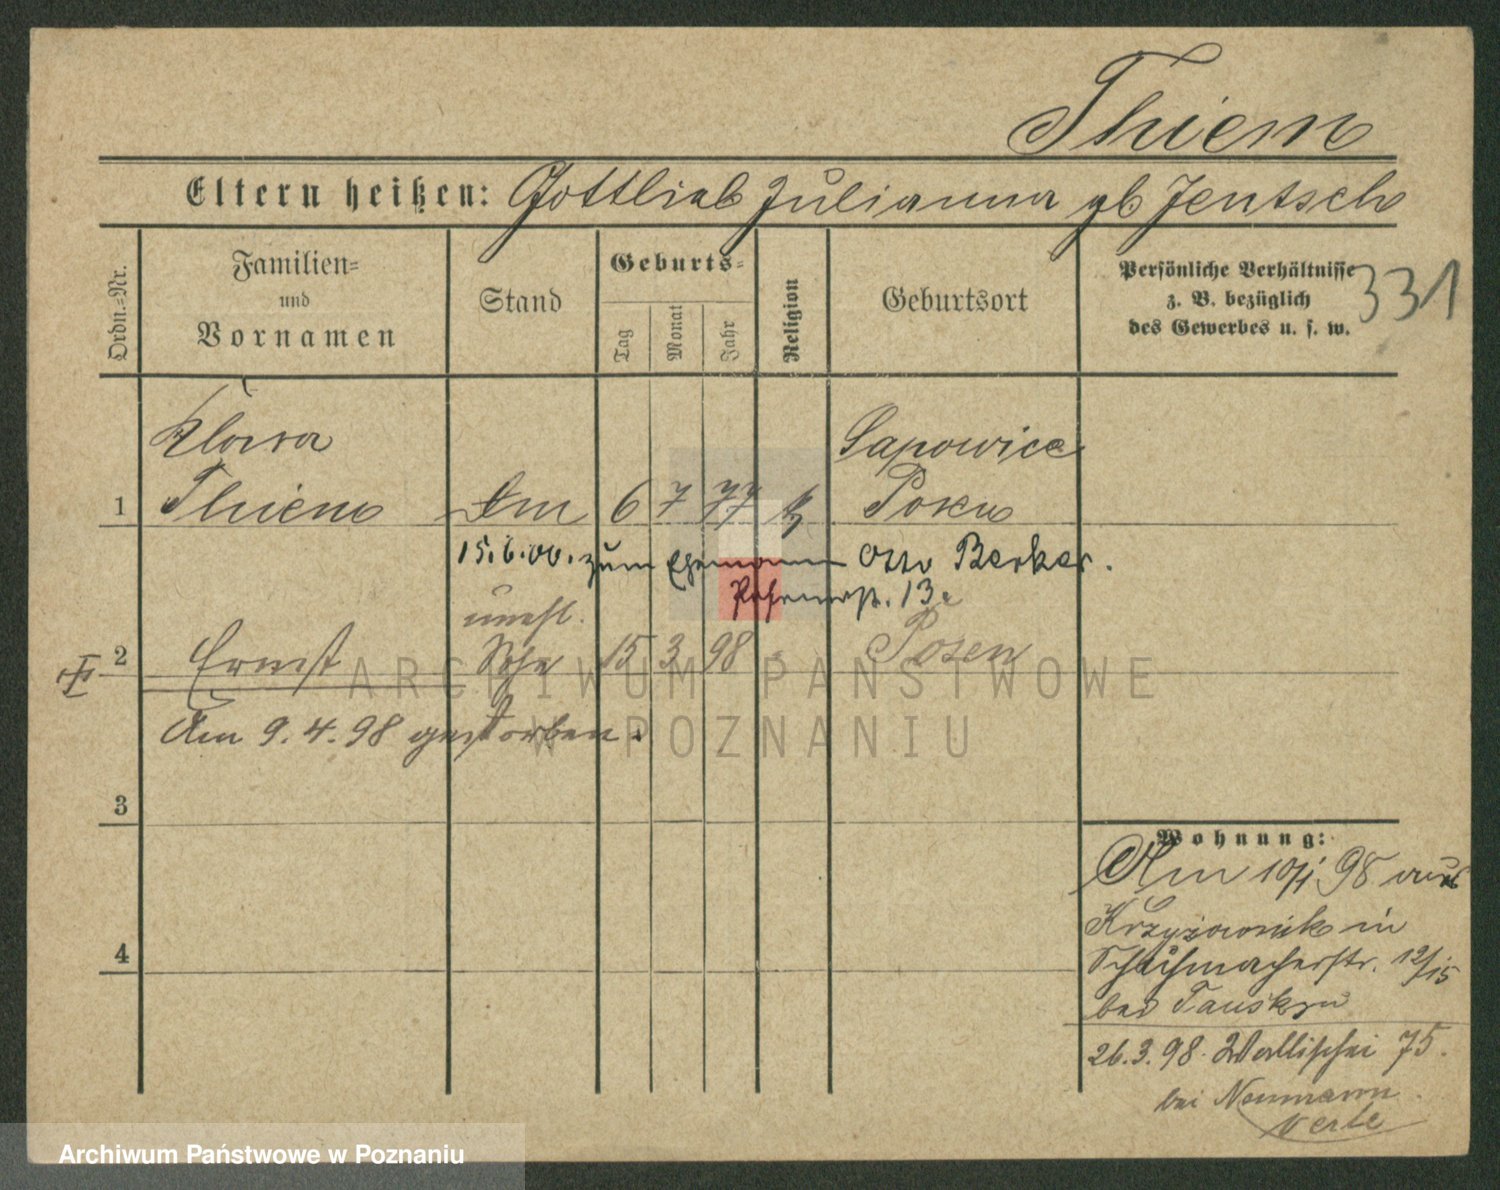 Thiem
Eltern heißen: Gottlieb Julianna gb Jentsch
Ordn.-Nr.
Familien-
und
Vornamen
Stand
Geburts-
Tag
Monat
Jahr
Religion
Geburtsort
Persönliche Verhältnisse
z. B. bezüglich
des Gewerbes u. s. w.
331
Klara
Sapowice
1 Thiem 6 7 77 Posen
15.6.00. zum Ehemann Otto Berker.
13.
unehl.
2 Ernst Sohn 15 3 98 Posen
Am 9.4.98 gestorben.
3
4
Wohnung:
Am 10/1 98 aus
Krzyżownik in
Schuhmacherstr. 12/15
bei
26.3.98. Wallischei 75.
bei Neumann
ARCHIWUM PAŃSTWOWE
W POZNANIU
Archiwum Państwowe w Poznaniu